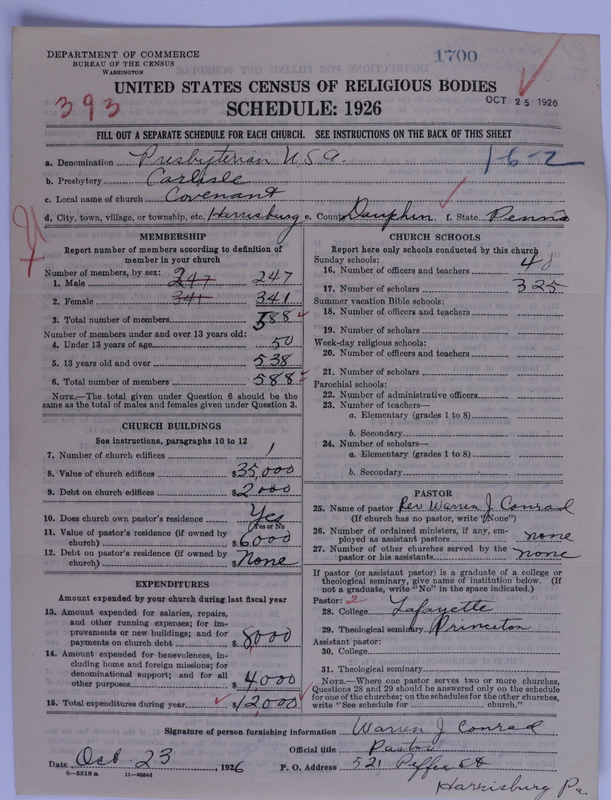 DEPARTMENT OF COMMERCE
BUREAU OF THE CENSUS
WASHINGTON
1700
UNITED STATES CENSUS OF RELIGIOUS BODIES
SCHEDULE: 1926
OCT 25 1926
393
FILL OUT A SEPARATE SCHEDULE FOR EACH CHURCH. SEE INSTRUCTIONS ON THE BACK OF THIS SHEET
a. Denomination Presbyterian U.S.A.
1-6-2
b. Presbytery Carlisle
c. Local name of church Covenant
d. City, town, village, or township, etc. Harrisburg e. County Dauphin f. State Penna
MEMBERSHIP
Report number of members according to definition of member in your church
Number of members, by sex:
1. Male 247 247
2. Female 341 341
3. Total number of members 588
Number of members under and over 13 years old:
4. Under 13 years of age 50
5. 13 years old and over 538
6. Total number of members 588
NOTE.—The total given under Question 6 should be the same as the total of males and females given under Question 3.
CHURCH BUILDINGS
See instructions, paragraphs 10 to 12
7. Number of church edifices 1
8. Value of church edifices $35,000
9. Debt on church edifices $2000
10. Does church own pastor's residence Yes
Yes or No
11. Value of pastor's residence (if owned by church) $6000
12. Debt on pastor's residence (if owned by church) $None
EXPENDITURES
Amount expended by your church during last fiscal year
13. Amount expended for salaries, repairs, and other running expenses; for improvements or new buildings; and for payments on church debt $8000
14. Amount expended for benevolences, including home and foreign missions; for denominational support; and for all other purposes $4000
15. Total expenditures during year $12,000
CHURCH SCHOOLS
Report here only schools conducted by this church
Sunday schools:
16. Number of officers and teachers 48
17. Number of scholars 325
Summer vacation Bible schools:
18. Number of officers and teachers
19. Number of scholars
Week-day religious schools:
20. Number of officers and teachers
21. Number of scholars
Parochial schools:
22. Number of administrative officers
23. Number of teachers—
a. Elementary (grades 1 to 8)
b. Secondary
24. Number of scholars—
a. Elementary (grades 1 to 8)
b. Secondary
PASTOR
25. Name of pastor Rev Warren J. Conrad
(If church has no pastor, write "None")
26. Number of ordained ministers, if any, employed as assistant pastors none
27. Number of other churches served by the pastor or his assistants none
If pastor (or assistant pastor) is a graduate of a college or theological seminary, give name of institution below. (If not a graduate, write "No" in the space indicated.)
Pastor: 2
28. College Lafayette
29. Theological seminary Princeton
Assistant pastor:
30. College
31. Theological seminary
NOTE.—Where one pastor serves two or more churches, Questions 28 and 29 should be answered only on the schedule for one of the churches; on the schedules for the other churches, write "See schedule for church."
Signature of person furnishing information Warren J Conrad
Official title Pastor
Date Oct 23 1926 P. O. Address 521 Peffer St
8—5518 a 11—9064d
Harrisburg Pa.